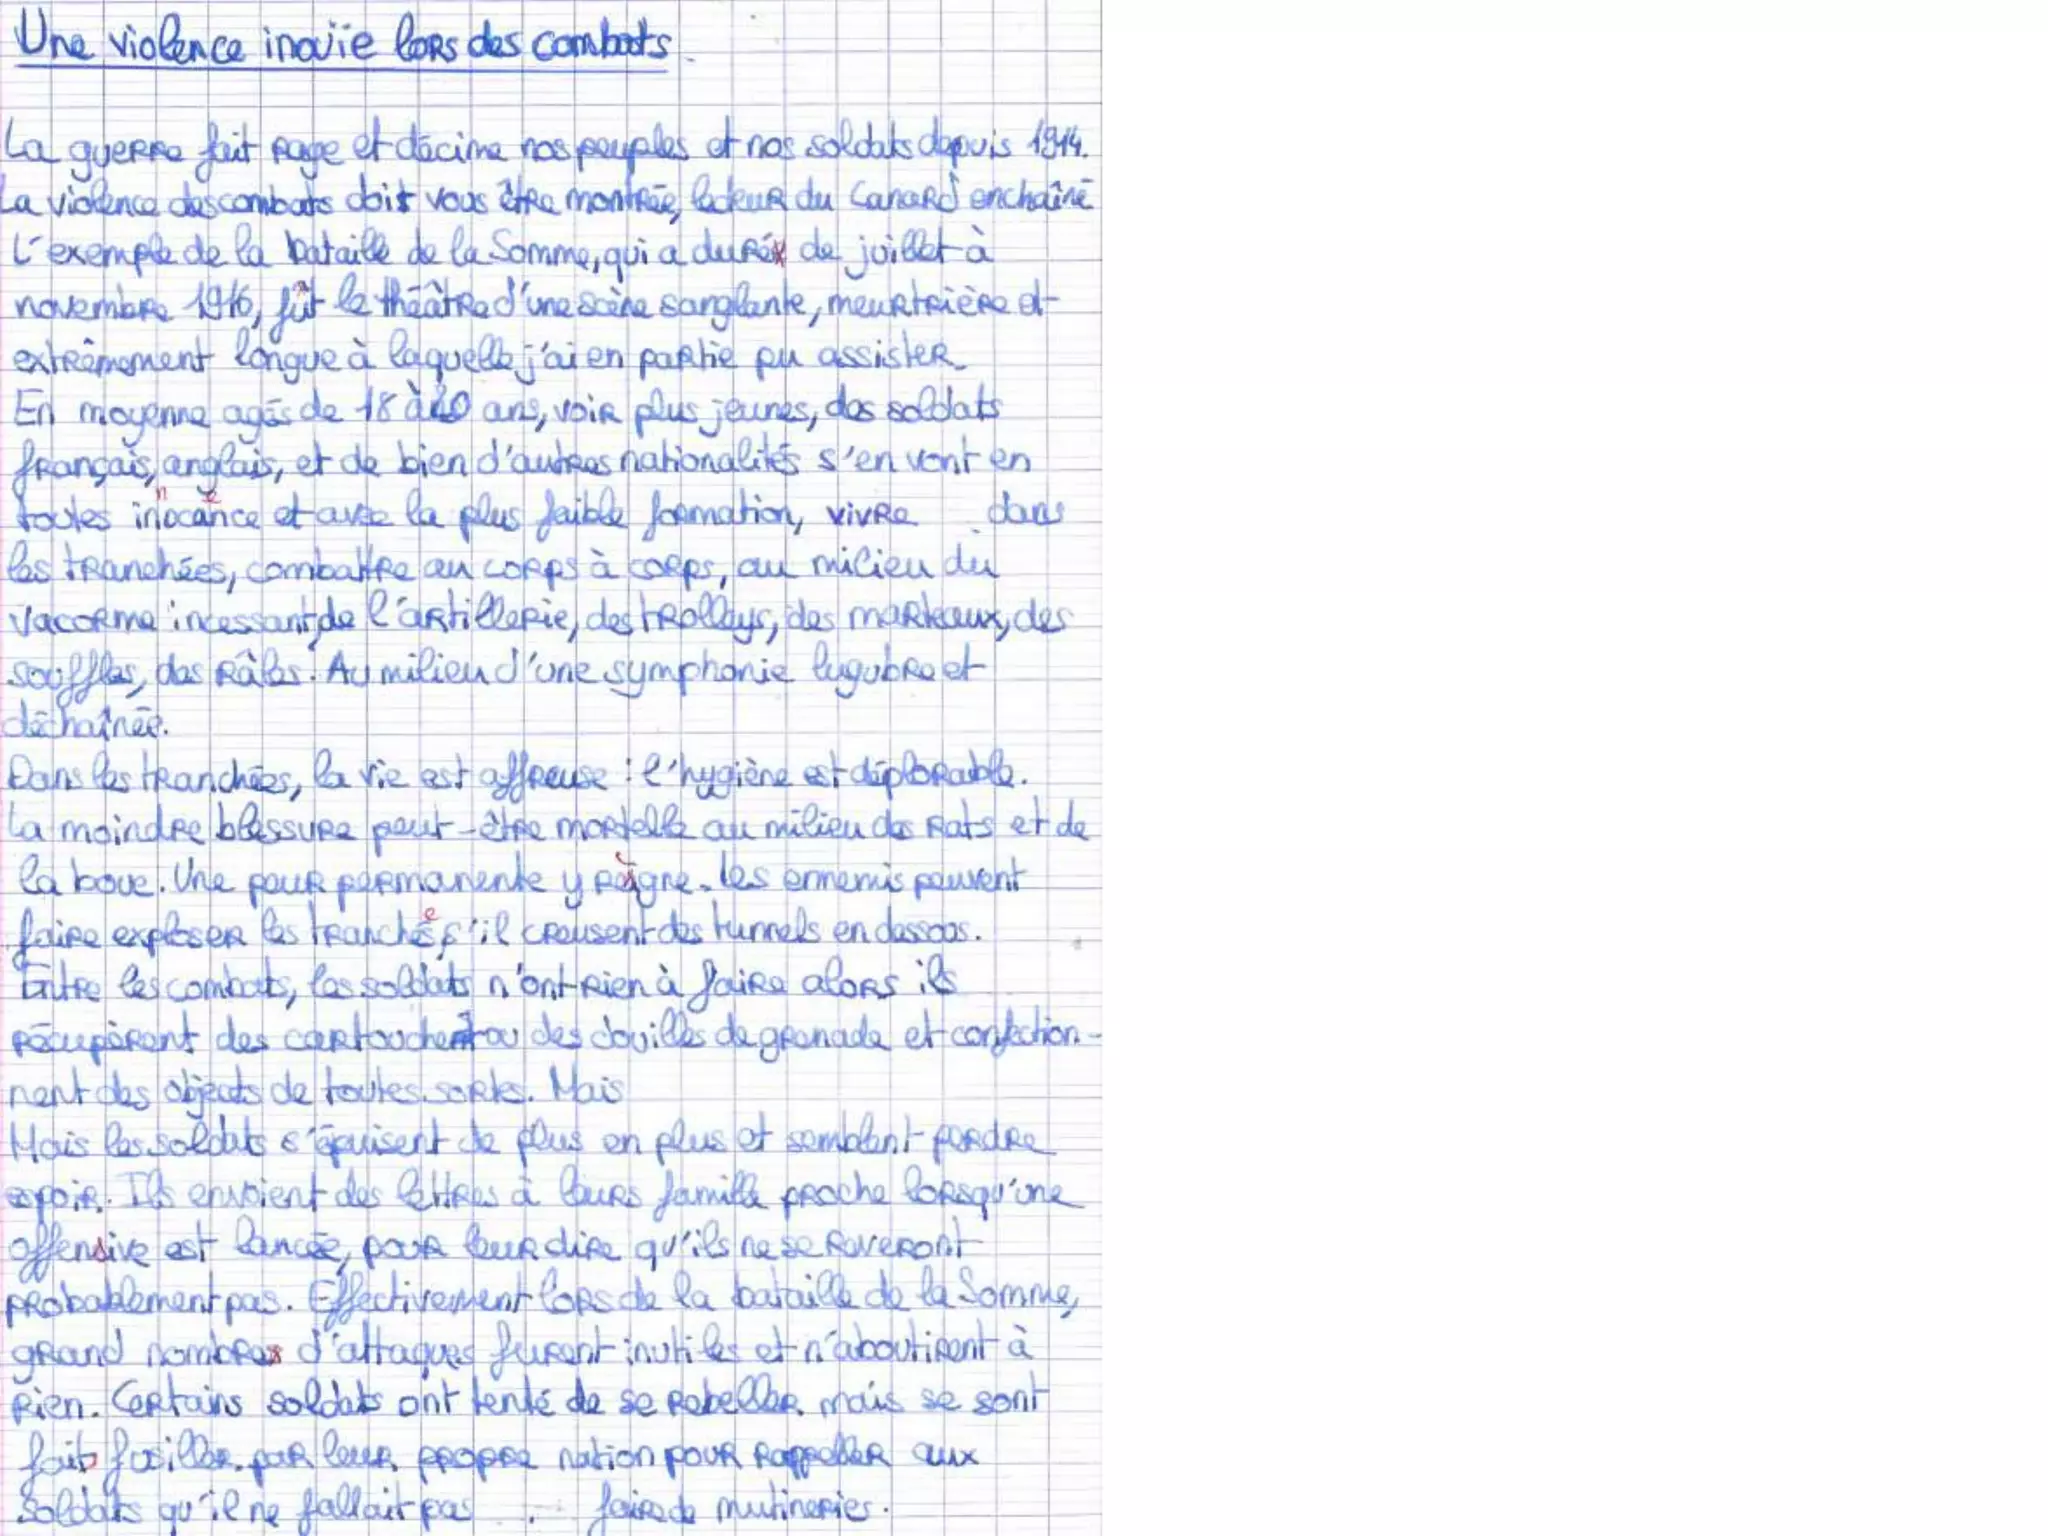 Une violence inouïe lors des combats.
La guerre fait rage et décime nos peuples et nos soldats depuis 1914.
La violence des combats doit vous être montrée, lecteur du Canard enchaîné
L'exemple de la bataille de la Somme, qui a duré de juillet à
novembre 1916, fût le théâtre d'une scène sanglante, meurtrière et
extrêmement longue à laquelle j'ai en partie pu assister.
En moyenne agés de 18 à 20 ans, voir plus jeunes, des soldats
français, anglais, et de bien d'autres nationalités s'en vont en
toutes inocence et avec la plus faible formation, vivre dans
les tranchées, combattre au corps à corps, au milieu du
vacorme incessant de l'artillerie, des trolleys, des marteaux, des
souffles, des râles. Au milieu d'une symphonie lugubre et
déchaînée.
Dans les tranchées, la vie est affreuse : l'hygiène est déplorable.
La moindre blessure peut-être mortelle au milieu des rats et de
la boue. Une peur permanente y règne. Les ennemis peuvent
faire exploser les tranchées s'il creusent des tunnels en dessous.
Entre les combats, les soldats n'ont rien à faire alors ils
récupèrent des cartouches ou des douilles de grenade et confection-
nent des objects de toutes sortes. Mais
Mais les soldats s'épuisent de plus en plus et semblent perdre
espoir. Ils envoient des lettres à leurs famille proche lorsqu'une
offensive est lancée, pour leur dire qu'ils ne se reveront
probablement pas. Effectivement lors de la bataille de la Somme,
grand nombres d'attaques furent inutiles et n'aboutirent à
rien. Certains soldats ont tenté de se rebeller mais se sont
fait fusiller par leur propre nation pour rappeller aux
soldats qu'il ne fallait pas faire de mutineries.